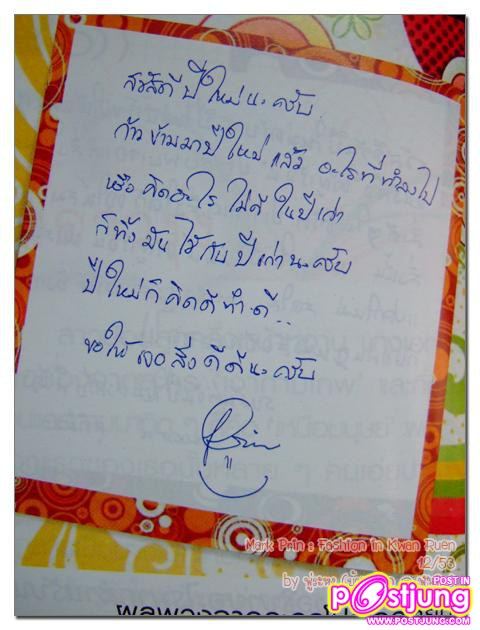 สวัสดีปีใหม่นะครับ
ก้าวข้ามมาปีใหม่แล้ว อะไรที่ทำลงไป
หรือคิดอะไร ไม่ดี ในปีเก่า
ก็ทิ้งมันไว้กับปีเก่านะครับ
ปีใหม่ก็คิดดีทำดี..
ขอให้เจอสิ่งดีดีนะครับ
Prin
Mark Prin : Fashion in Kwan Ruen
12/53
by
POST IN
Postjung
WWW.POSTJUNG.COM